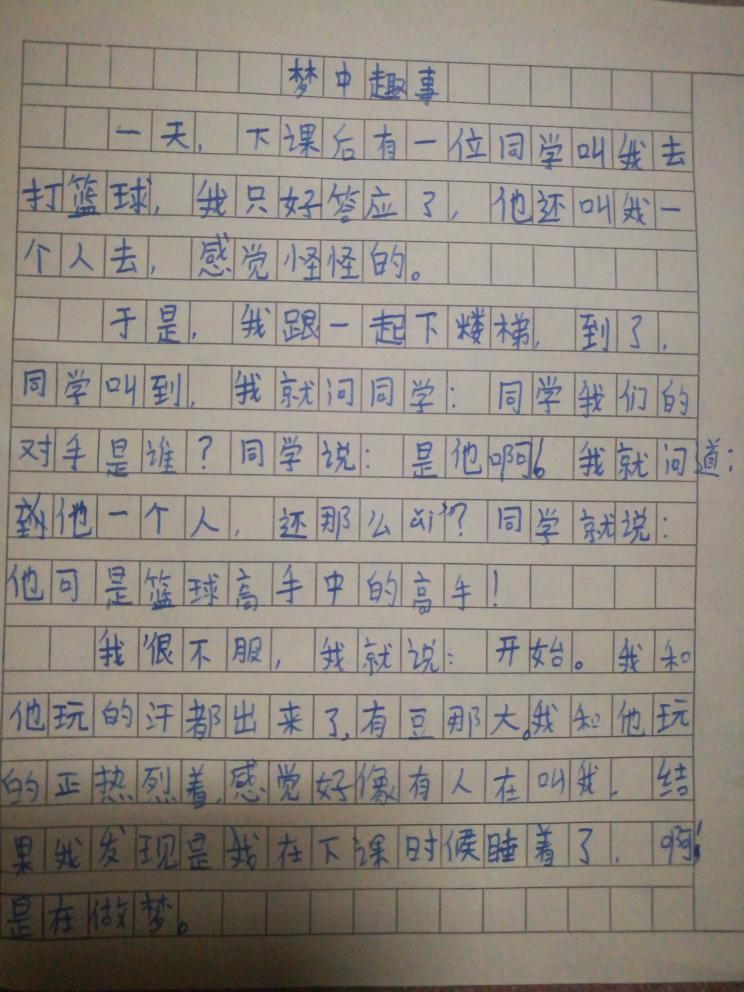 梦中趣事
一天，下课后有一位同学叫我去
打篮球，我只好答应了，他还叫我一
个人去，感觉怪怪的。
于是，我跟一起下楼梯，到了，
同学叫到，我就问同学：同学我们的
对手是谁？同学说：是他啊！我就问道：
到他一个人，还那么？同学就说：
他可是篮球高手中的高手！
我很不服，我就说：开始。我和
他玩的汗都出来了，有豆那大。我和他玩
的正热烈着，感觉好像有人在叫我．结
果我发现是我在下课时候睡着了．啊！
是在做梦。